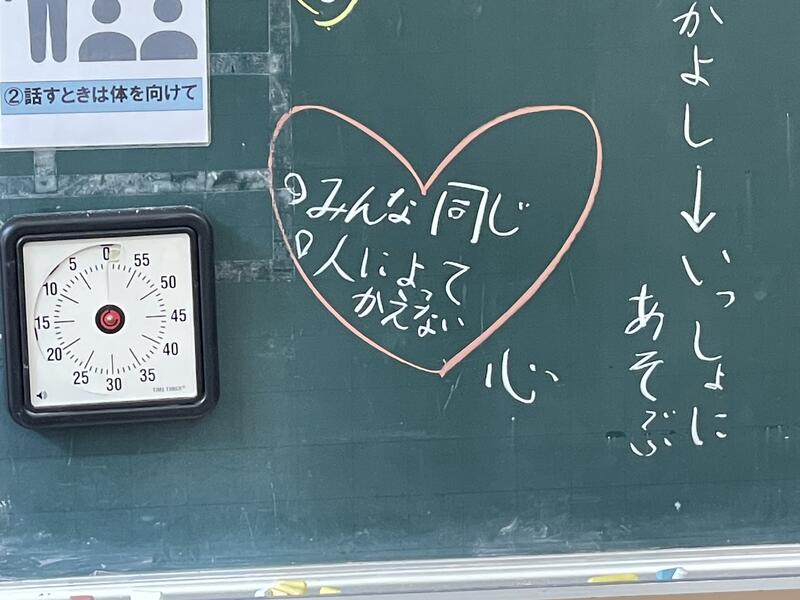 ②話すときは体を向けて
みんな同じ
人によって
かえない
心
かよし→いっしょに
あそぶ
0
55
50
45
40
35
30
25
20
15
10
5
TIME TIMER